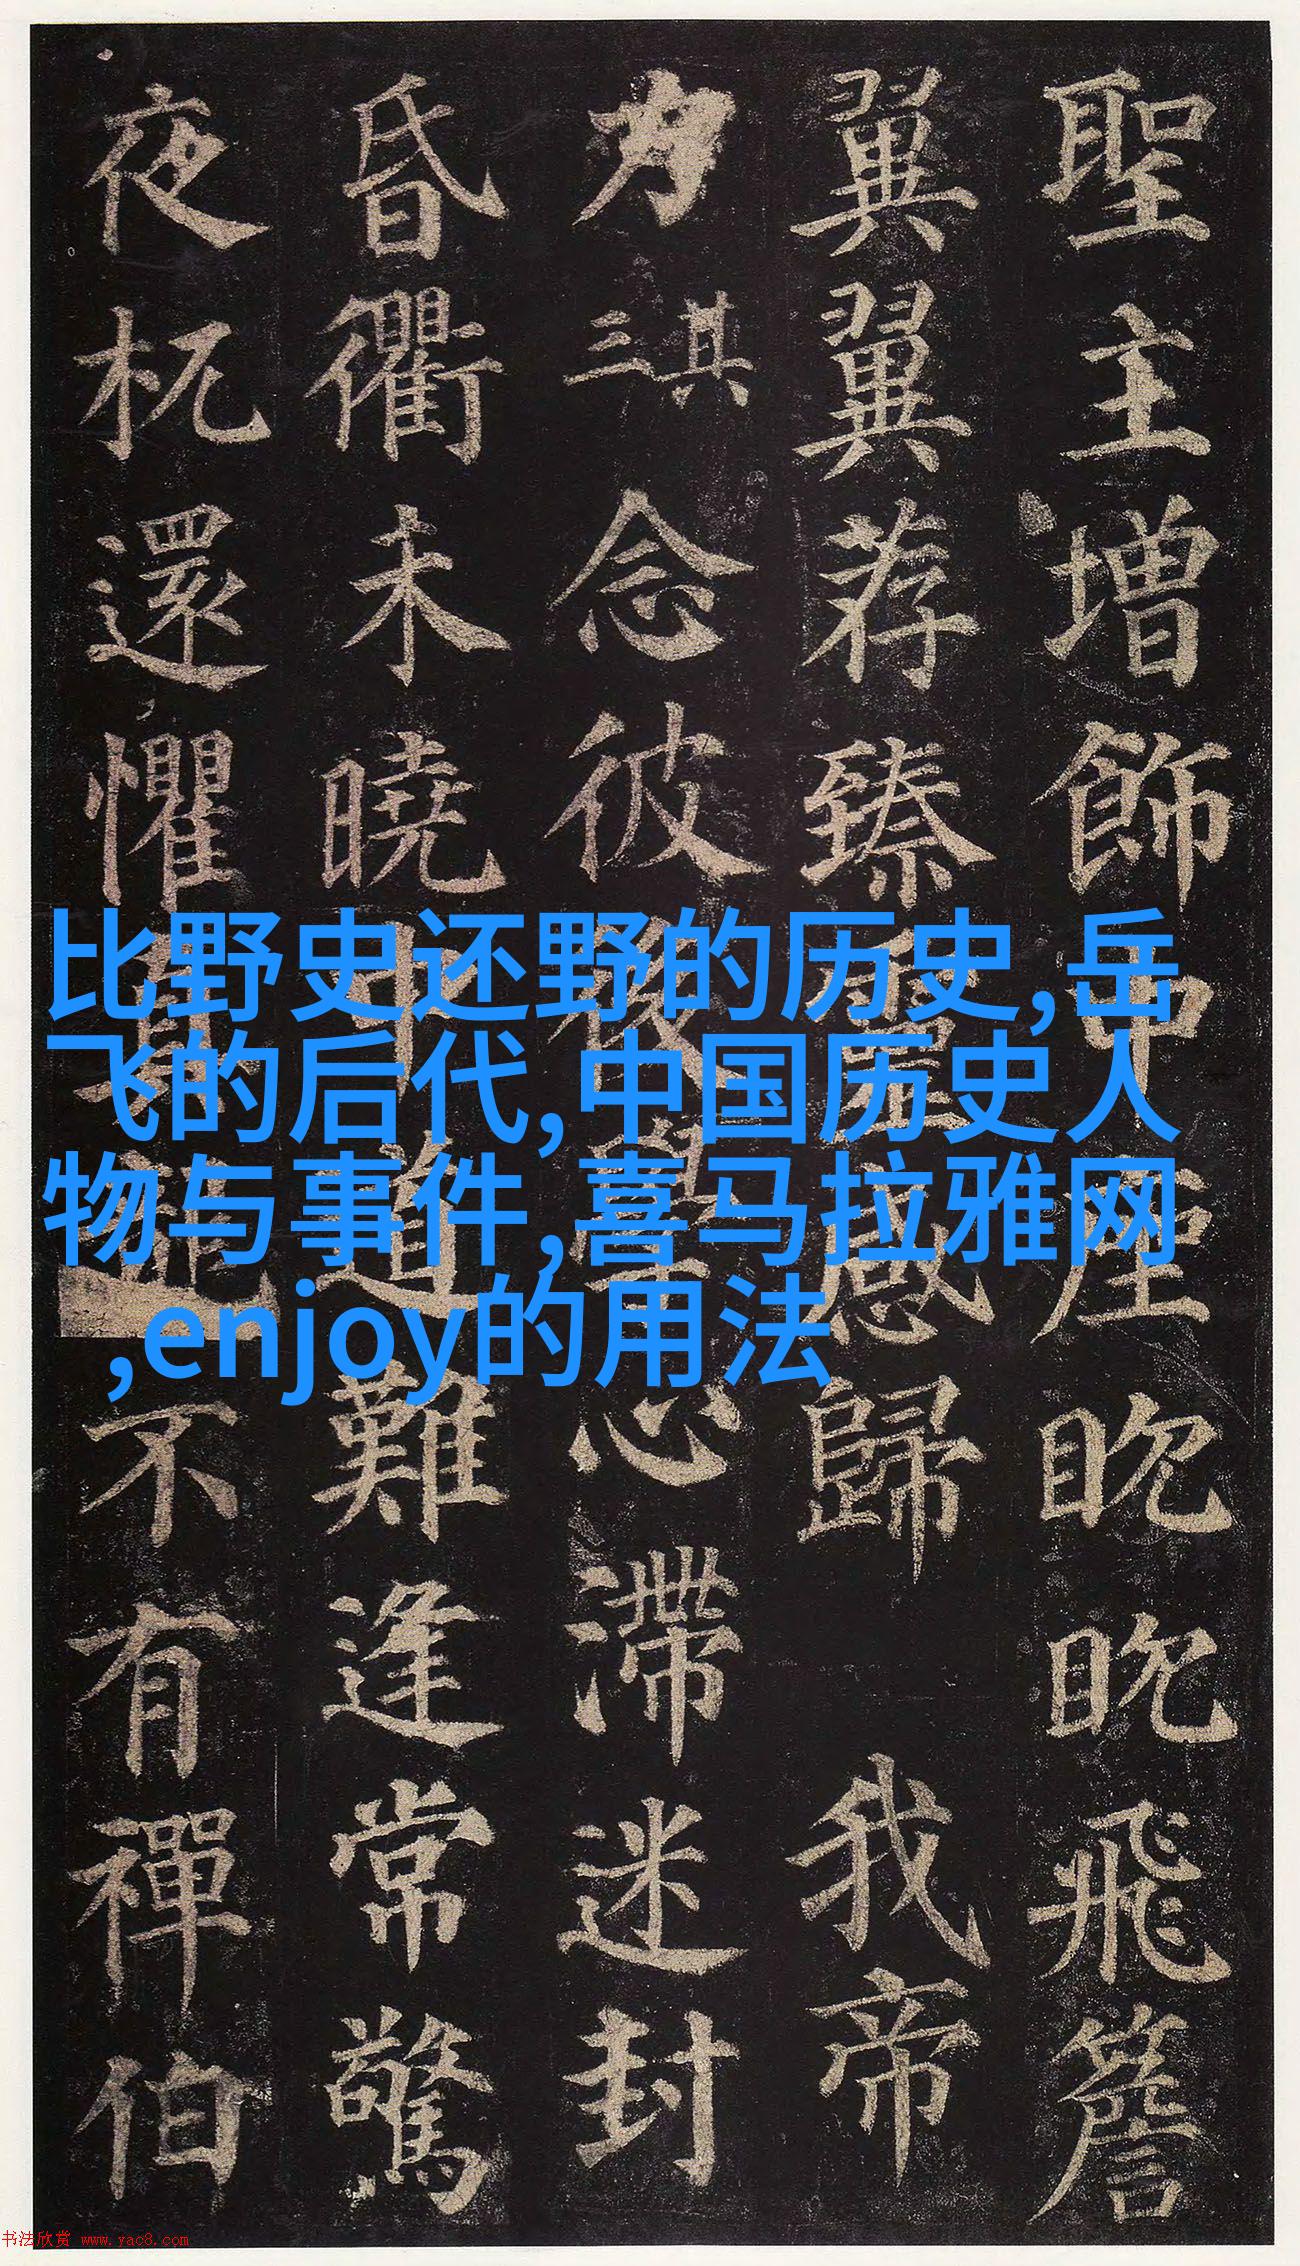 聖主增飾中座眈眈飛簷
翼翼荐臻靈感歸我帝
力其三念彼後學心滯迷封
昏衢未曉中道難逢常驚
夜杌還懼真龍不有禪伯
比野史还野的历史,岳
飞的后代,中国历史人
物与事件,喜马拉雅网
,enjoy的用法
书法欣赏 www.yac8.com